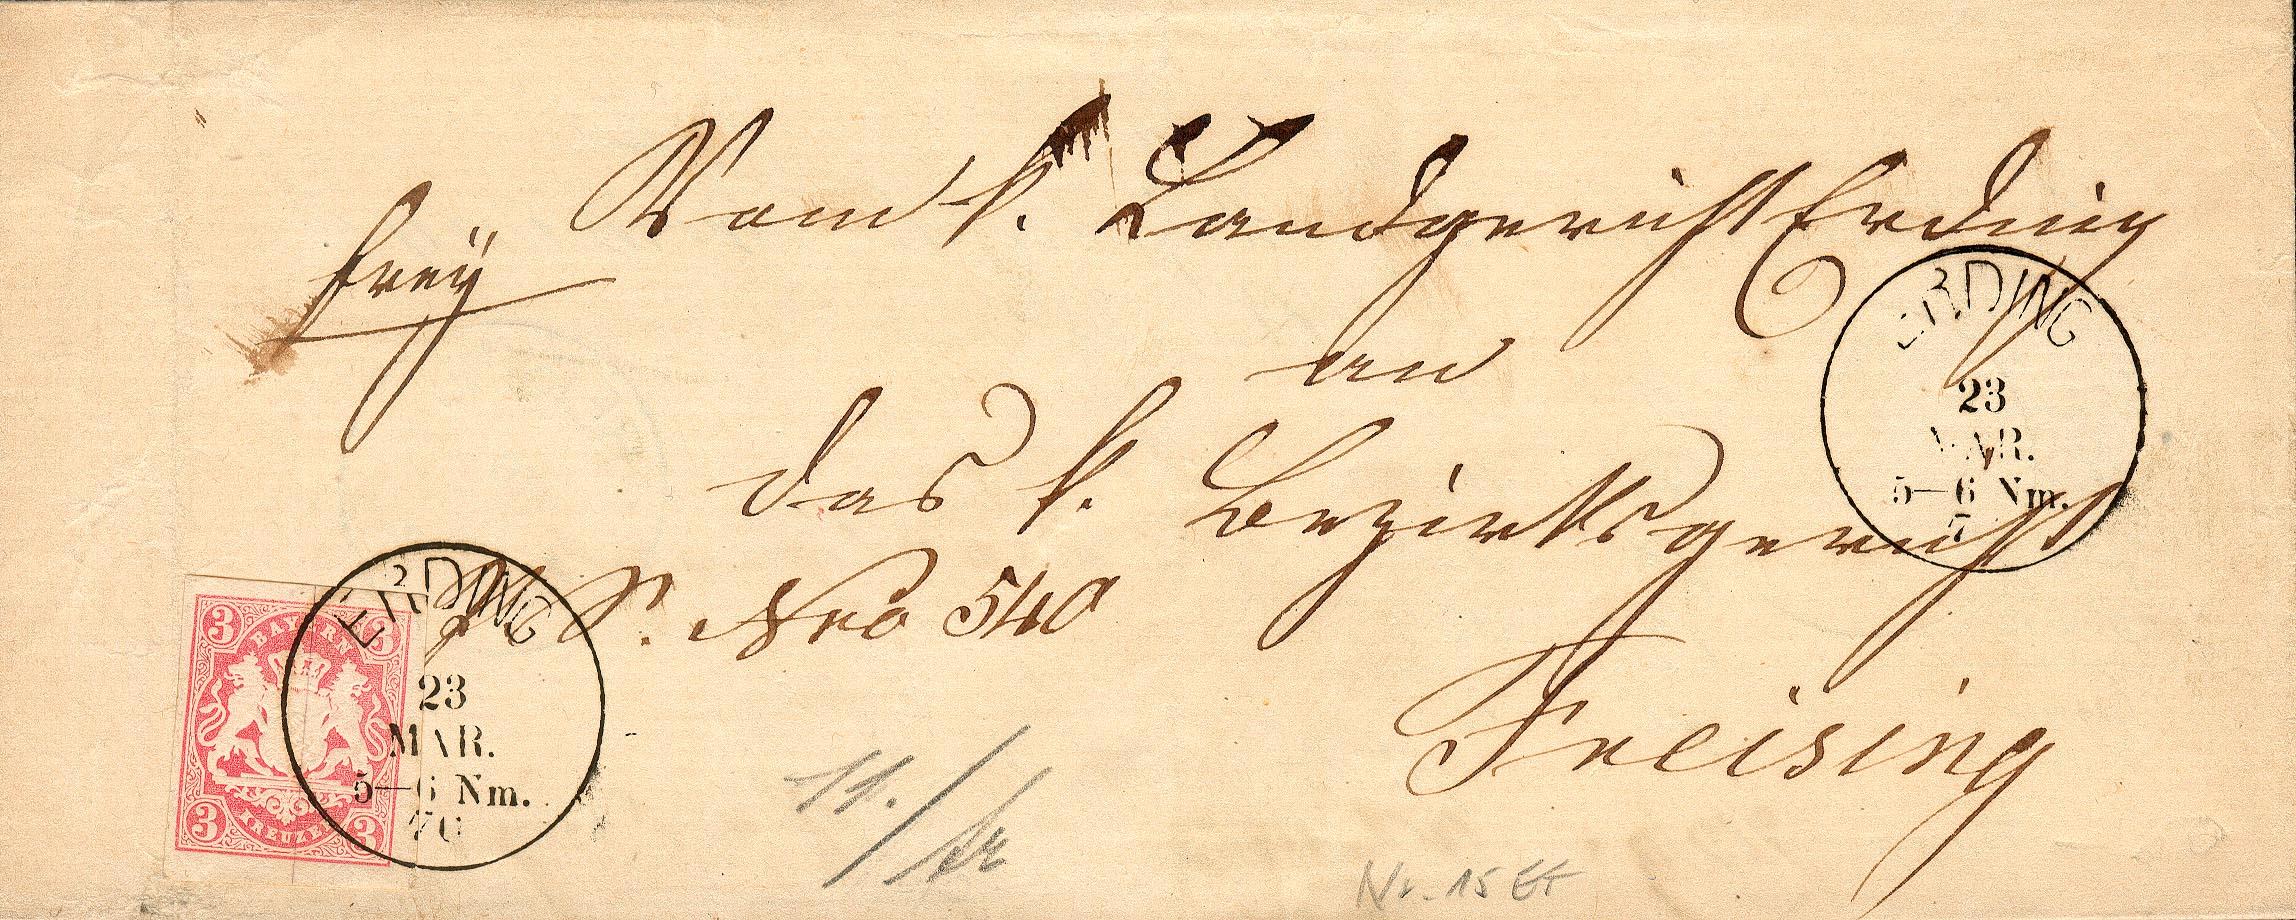 Vom k. Landgericht Erding
frey
an
das k. Bezirksgericht
Nro 540
Freising
ERDING
23
MAR.
5–6 Nm.
7
ERDING
23
MAR.
5–6 Nm.
70
3 BAYERN 3
3 KREUZER 3
11./
Nr. 15